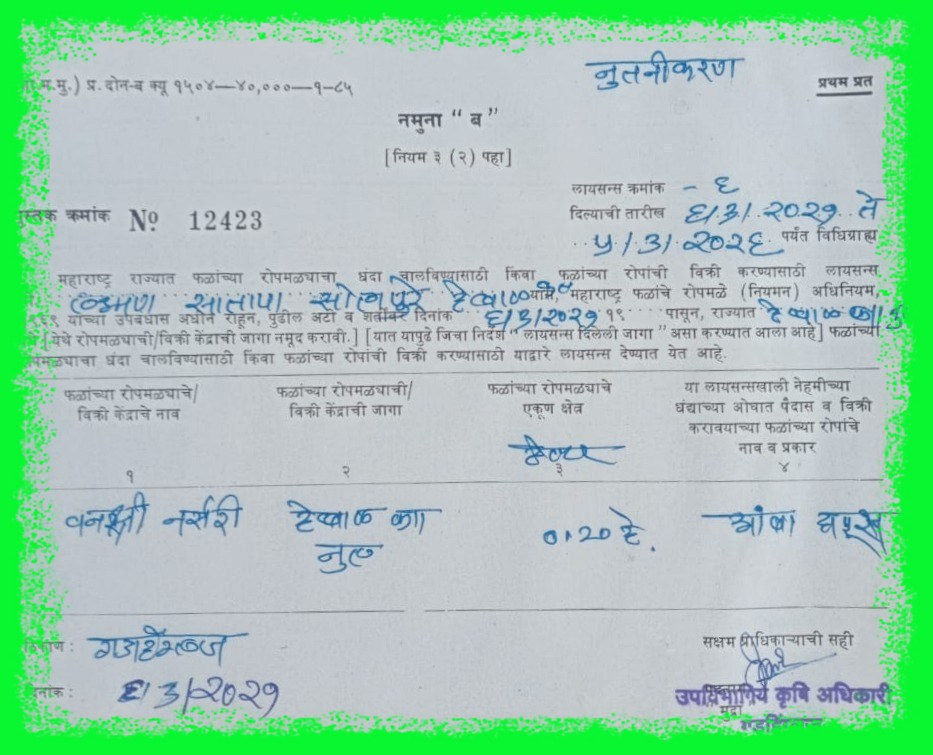 नुतनीकरण
म.मु.) प्र. दोन-ब क्यू १५०४—४०,०००—१-८५
प्रथम प्रत
नमुना " ब "
[नियम ३ (२) पहा]
लायसन्स क्रमांक - ६
पुस्तक क्रमांक Nº 12423
दिल्याची तारीख ६/३/२०२१ ते
५/३/२०२६ पर्यंत विधिग्राह्य
महाराष्ट्र राज्यात फळांच्या रोपमळ्याचा धंदा चालविण्यासाठी किंवा फळांच्या रोपांची विक्री करण्यासाठी लायसन्स
लक्ष्मण यांस, महाराष्ट्र फळांचे रोपमळे (नियमन) अधिनियम,
यांच्या उपबंधास अधीन राहून, पुढील अटी व शर्तीवर दिनांक ६/३/२०२१ १९ पासून, राज्यात
[येथे रोपमळ्याची/विक्री केंद्राची जागा नमूद करावी.] [यात यापुढे जिचा निर्देश " लायसन्स दिलेली जागा " असा करण्यात आला आहे] फळांच्या
रोपमळ्याचा धंदा चालविण्यासाठी किंवा फळांच्या रोपांची विक्री करण्यासाठी याद्वारे लायसन्स देण्यात येत आहे.
फळांच्या रोपमळ्याचे/
विक्री केंद्राचे नाव
फळांच्या रोपमळ्याची/
विक्री केंद्राची जागा
फळांच्या रोपमळ्याचे
एकूण क्षेत्र
या लायसन्सखाली नेहमीच्या
धंद्याच्या ओघात पैदास व विक्री
करावयाच्या फळांच्या रोपांचे
नाव व प्रकार
१
२
३
४
वनश्री नर्सरी
0.20 हे.
आंबा
ठिकाण : गडहिंग्लज
दिनांक : ६/३/२०२१
सक्षम प्राधिकाऱ्याची सही
मुद्रा
उपविभागीय कृषि अधिकारी
गडहिंग्लज